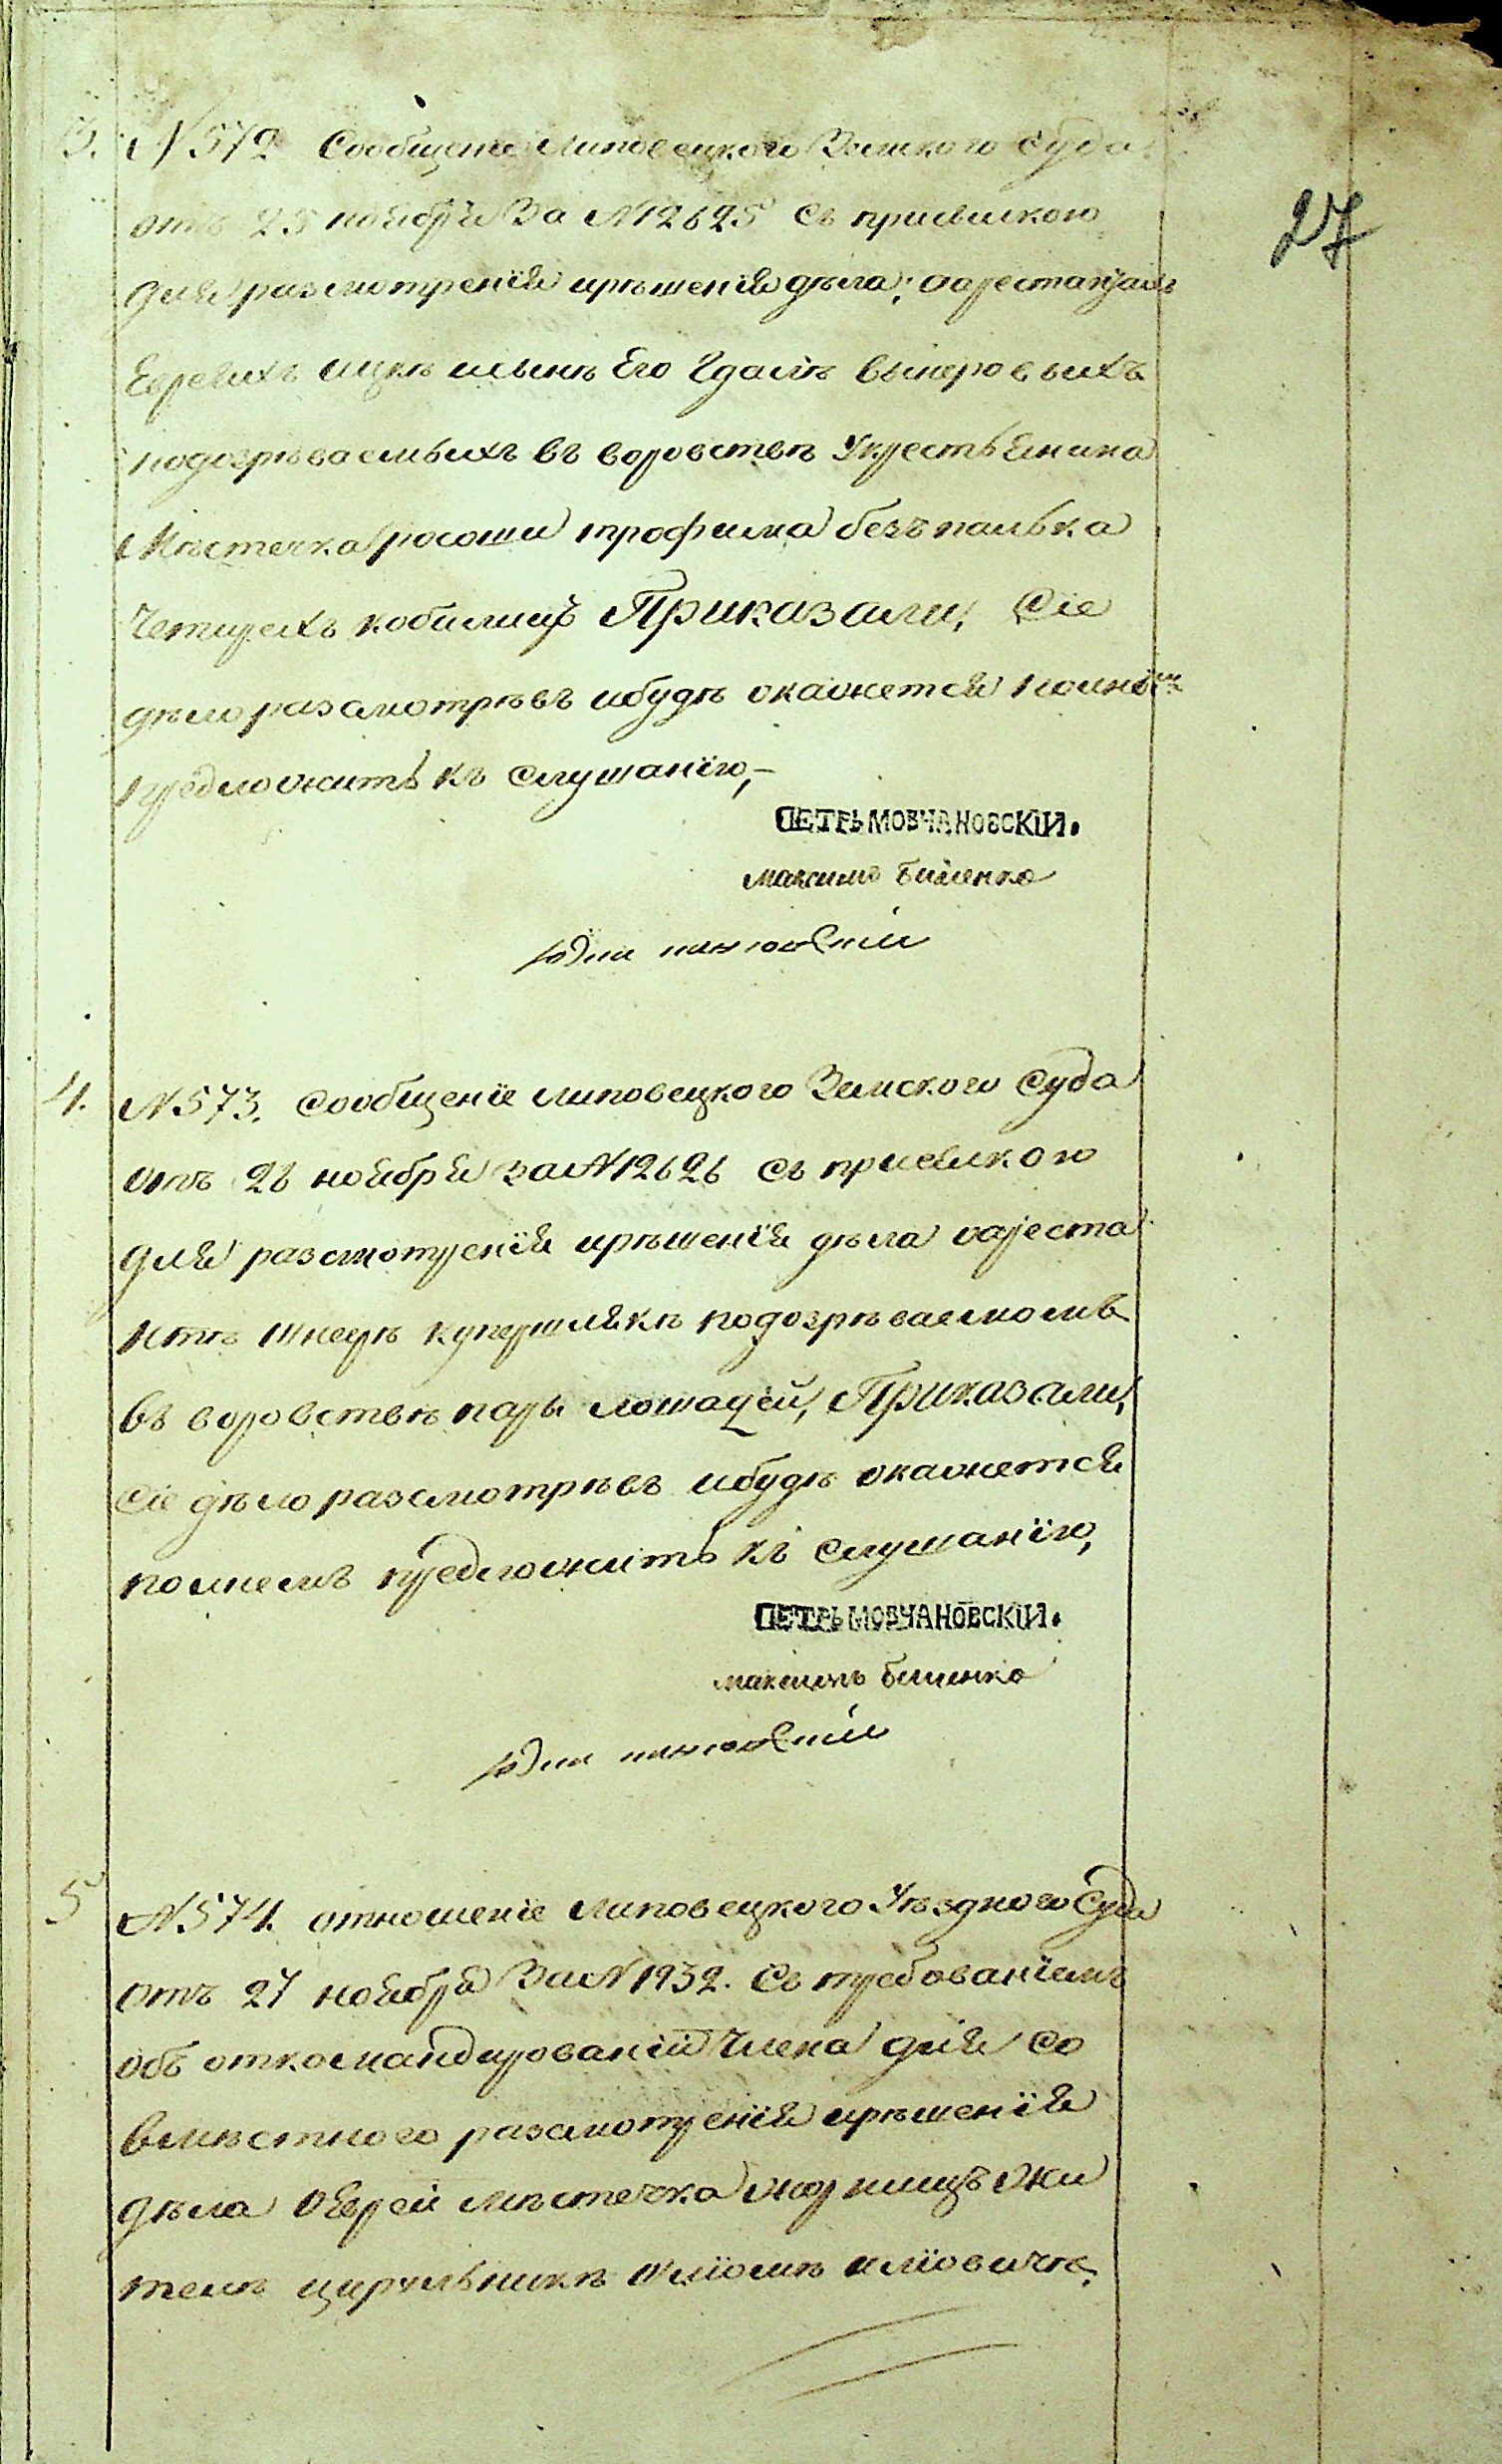 27
3. N 572 Сообщение Липовецкого Земского Суда
отъ 25 ноября За N 12625 Съ присылкою
для разсмотренїя ирѣшенїя дѣла; оарестантахъ
Евреяхъ ицкѣ исынѣ Его
подозрѣваемыхъ въ воровствѣ Укрестьянина
Мѣстечка росоши трофима безъпалька
Четирехъ кобилицъ Приказали, Сїе
дѣло разсмотрѣвъ ибудѣ окажется полнымъ
предложить къ слушанїю,-
ПЕТРЬ МОВЧАНОВСКІЙ.
максимъ биленко
4. N 573. Сообщенїе липовецкого Земского Суда
отъ 26 ноября за N 12626 съ присылкою
для разсмотренїя ирѣшенїя дѣла оареста
нтѣ шнеерѣ купершлякѣ подозрѣваемомъ
въ воровствѣ пары лошадей, Приказали,
Сїе дѣло разсмотрѣвъ ибудѣ окажется
полнемъ предложить къ слушанїю,
ПЕТРЬ МОВЧАНОВСКІЙ.
максимъ биленко
5 N 574. отношенїе липовецкого Уѣздного Суда
отъ 27 ноября За N 1932. Съ требованїемъ
объ откомандированїй Члена для Со
вмѣстного разсмотренїя ирѣшенїя
дѣла оЕврей мѣстечка жорнищъ жи
телѣ цирульникѣ